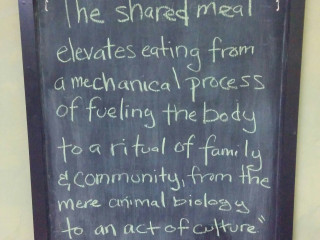 The shared meal
elevates eating from
a mechanical process
of fueling the body
to a ritual of family
& community, from the
mere animal biology
to an act of culture"